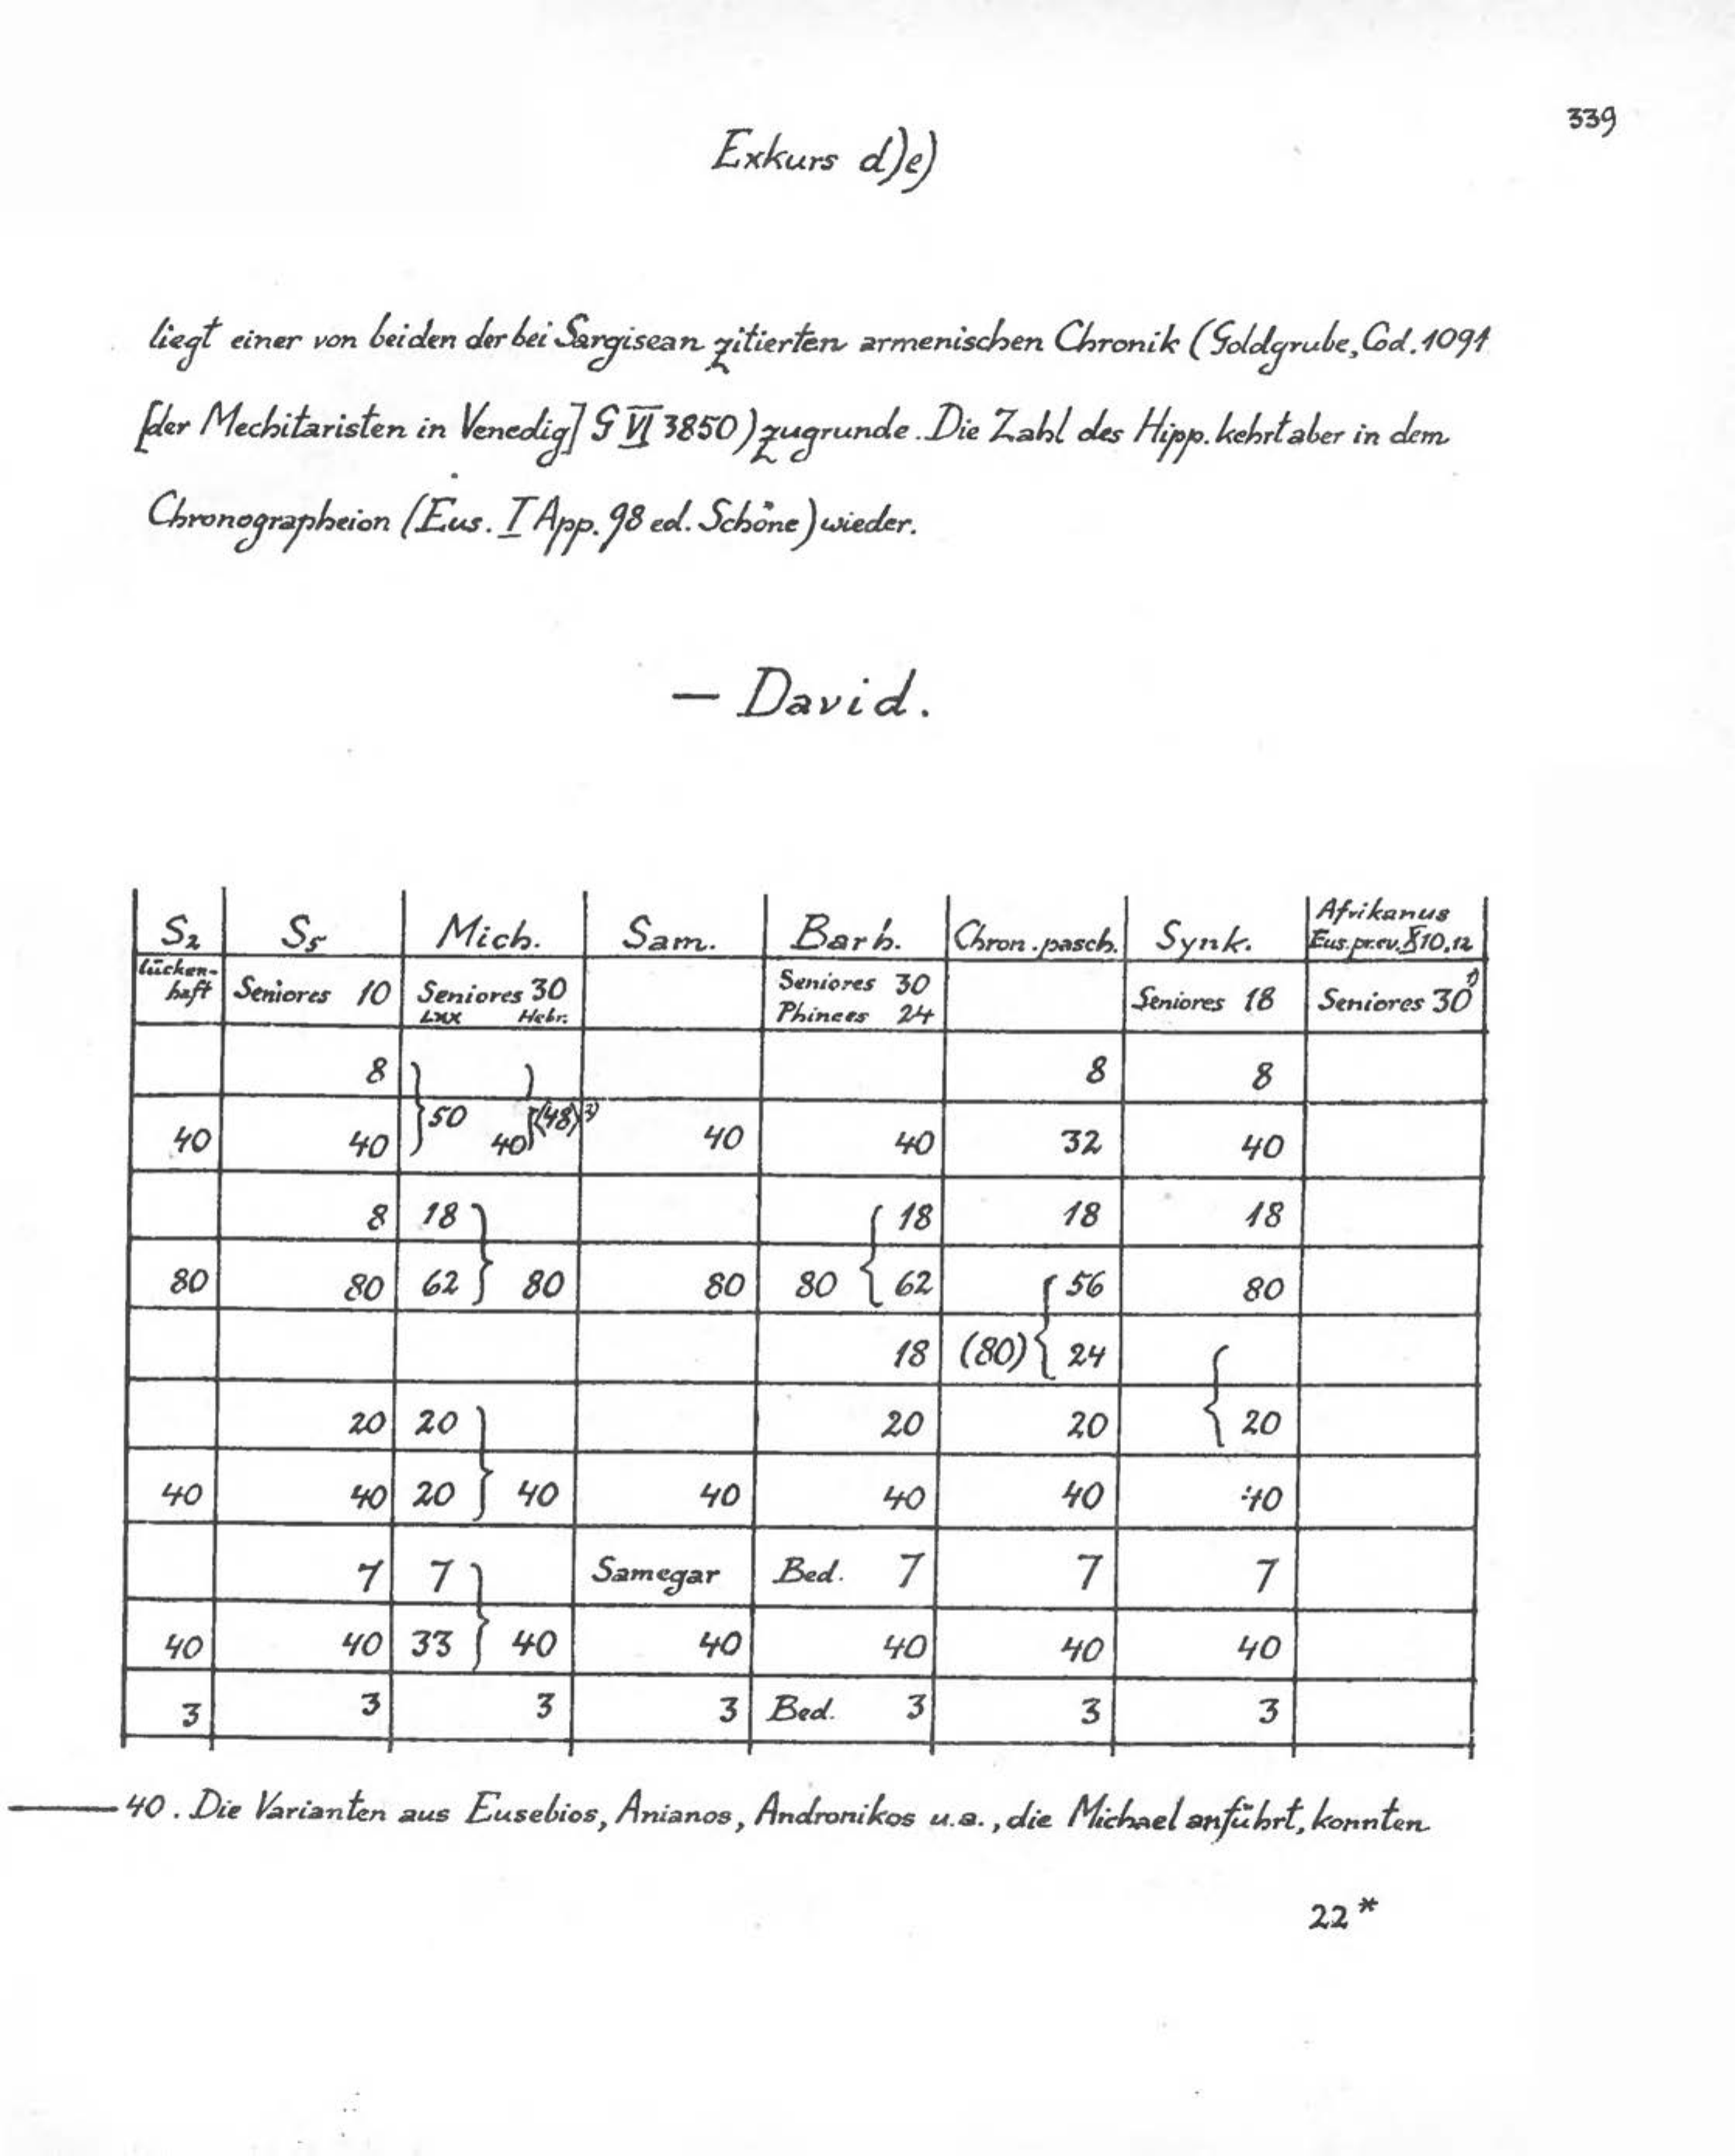 339
Exkurs d)e)
liegt einer von beiden der bei Sargisean zitierten armenischen Chronik (Goldgrube, Cod. 1091
[der Mechitaristen in Venedig] G VI 3850) zugrunde. Die Zahl des Hipp. kehrt aber in dem
Chronographeion (Eus. I App. 98 ed. Schöne) wieder.
— David.
S2 S5 Mich. Sam. Barh. Chron. pasch. Synk. Afrikanus Eus. pr. ev. X 10,12
lückenhaft Seniores 10 Seniores 30 Lxx Hebr. Seniores 30 Phinees 24 Seniores 18 Seniores 30 1)
8 } } 8 8
40 40 50 40 (48) 2) 40 40 32 40
8 18 } { 18 18 18
80 80 62 80 80 80 62 { 56 80
18 (80) 24 {
20 20 } 20 20 20
40 40 20 40 40 40 40 40
7 7 } Samegar Bed. 7 7 7
40 40 33 40 40 40 40 40
3 3 3 3 Bed. 3 3 3
—40. Die Varianten aus Eusebios, Anianos, Andronikos u.a., die Michael anführt, konnten
22*